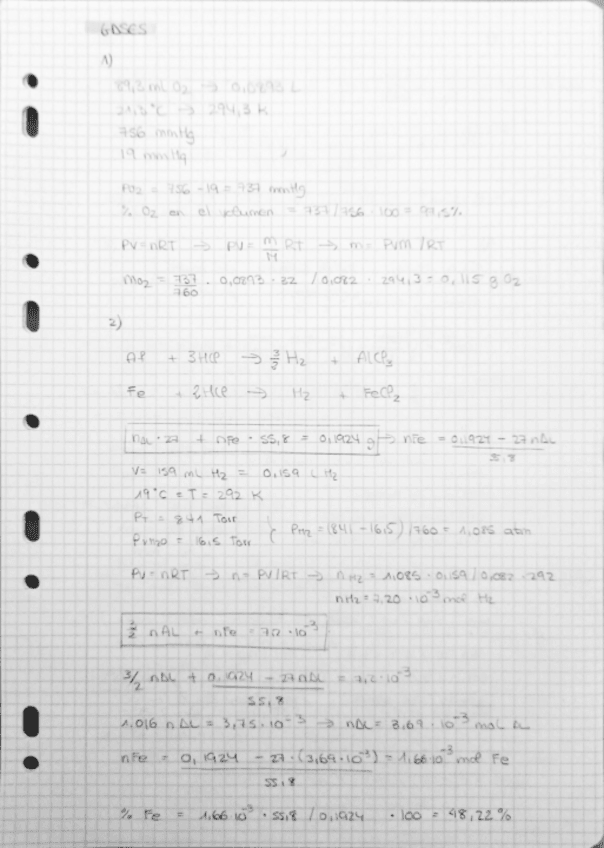 GASES
1)
89,3 mL O₂ → 0,0893 L
21,3 °C → 294,3 K
756 mmHg
19 mmHg
PO₂ = 756 - 19 = 737 mmHg
% O₂ en el volumen = 737/756 · 100 = 97,5%
PV = nRT → PV = m/M RT → m = PVM /RT
mO₂ = 737/760 · 0,0893 · 32 / 0,082 · 294,3 = 0,115 g O₂
2)
Al + 3HCl → 3/2 H₂ + AlCl₃
Fe + 2HCl → H₂ + FeCl₂
nAL · 27 + nFe · 55,8 = 0,1924 g → nFe = 0,1924 - 27 nAL / 55,8
V = 159 mL H₂ = 0,159 L H₂
19°C = T = 292 K
PT = 841 Torr
PvH₂O = 16,5 Torr { PH₂ = (841 - 16,5) /760 = 1,085 atm
PV = nRT → n = PV/RT → nH₂ = 1,085 · 0,159 / 0,082 · 292
nH₂ = 7,20 · 10⁻³ mol H₂
3/2 nAL + nFe = 7,2 · 10⁻³
3/2 nAL + 0,1924 - 27 nAL / 55,8 = 7,2 · 10⁻³
1,016 nAL = 3,75 · 10⁻³ → nAL = 3,69 · 10⁻³ mol AL
nFe = 0,1924 - 27 · (3,69 · 10⁻³) / 55,8 = 1,66 · 10⁻³ mol Fe
% Fe = 1,66 · 10⁻³ · 55,8 / 0,1924 · 100 = 48,22 %